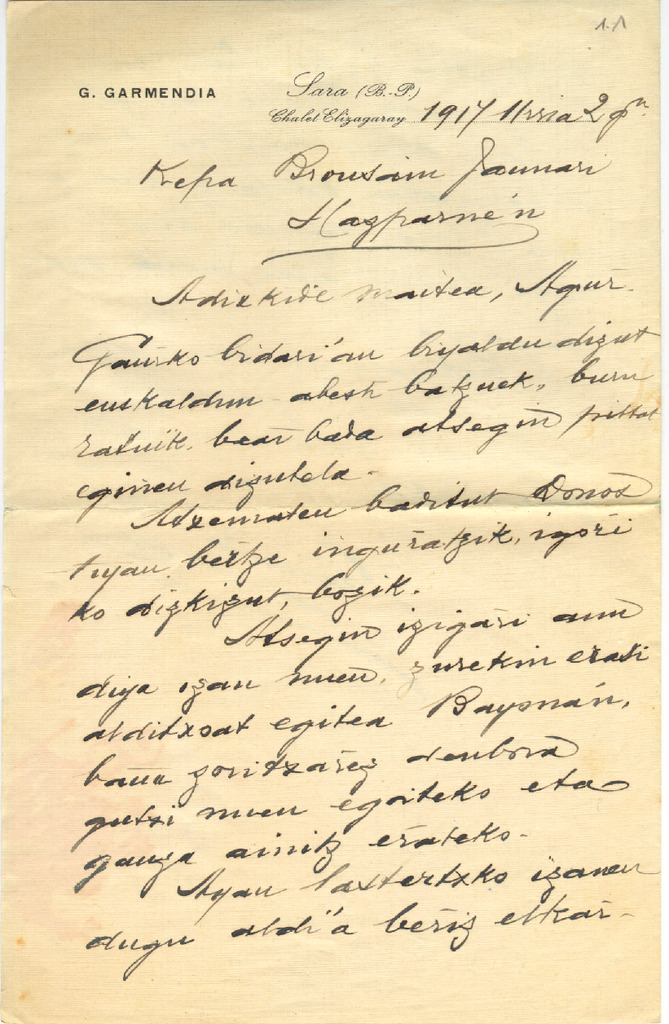 1.1
G. GARMENDIA
Sara (B.-P.)
Chalet Elizagaray
1917 Urria 2 gn.
Kepa Broussain Jaunari
Hazparne'n
Adizkide maitea, Agur.
Gaurko bidari'an bigaldu dizut
euskaldun abesti batzuek, buru
ratuik bear bada atsegin pittat
eginen dizutela.
Atzematen baditut Donos
tiyan bertze inguratzik, igorri
ko dizkizut, bozik.
Atsegin izigarri aun
diya izan nuen, zurekin erasi
alditxoat egitea Bayonan,
baña zoritzarrez denbora
gutxi nuen egoiteko eta
gauza ainitz erateko.
Ayan laxtertxko izanen
dugu aldi'a berriz elkar-